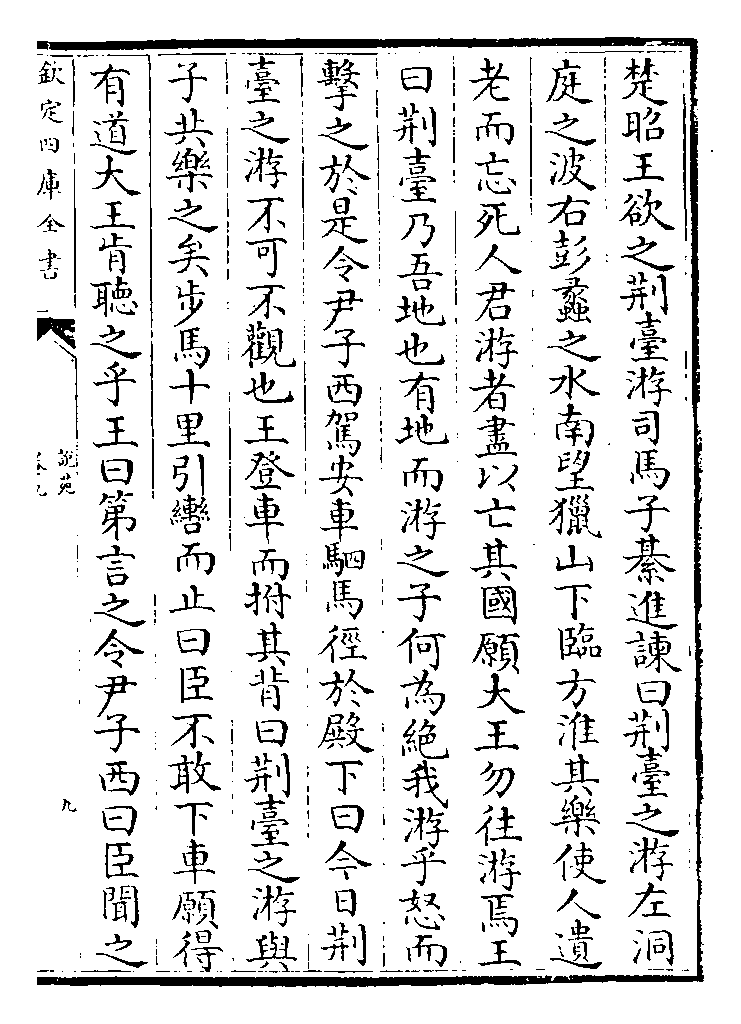 楚昭王欲之荆臺游司馬子綦進諫曰荆臺之游左洞
庭之波右彭蠡之水南望獵山下臨方淮其樂使人遺
老而忘死人君游者盡以亡其國願大王勿往游焉王
曰荆臺乃吾地也有地而游之子何為絶我游乎怒而
擊之於是令尹子西駕安車駟馬徑於殿下曰今日荆
臺之游不可不觀也王登車而拊其背曰荆臺之游與
子共樂之矣步馬十里引轡而止曰臣不敢下車願得
有道大王肯聽之乎王曰第言之令尹子西曰臣聞之
欽定四庫全書
說苑
卷九
九